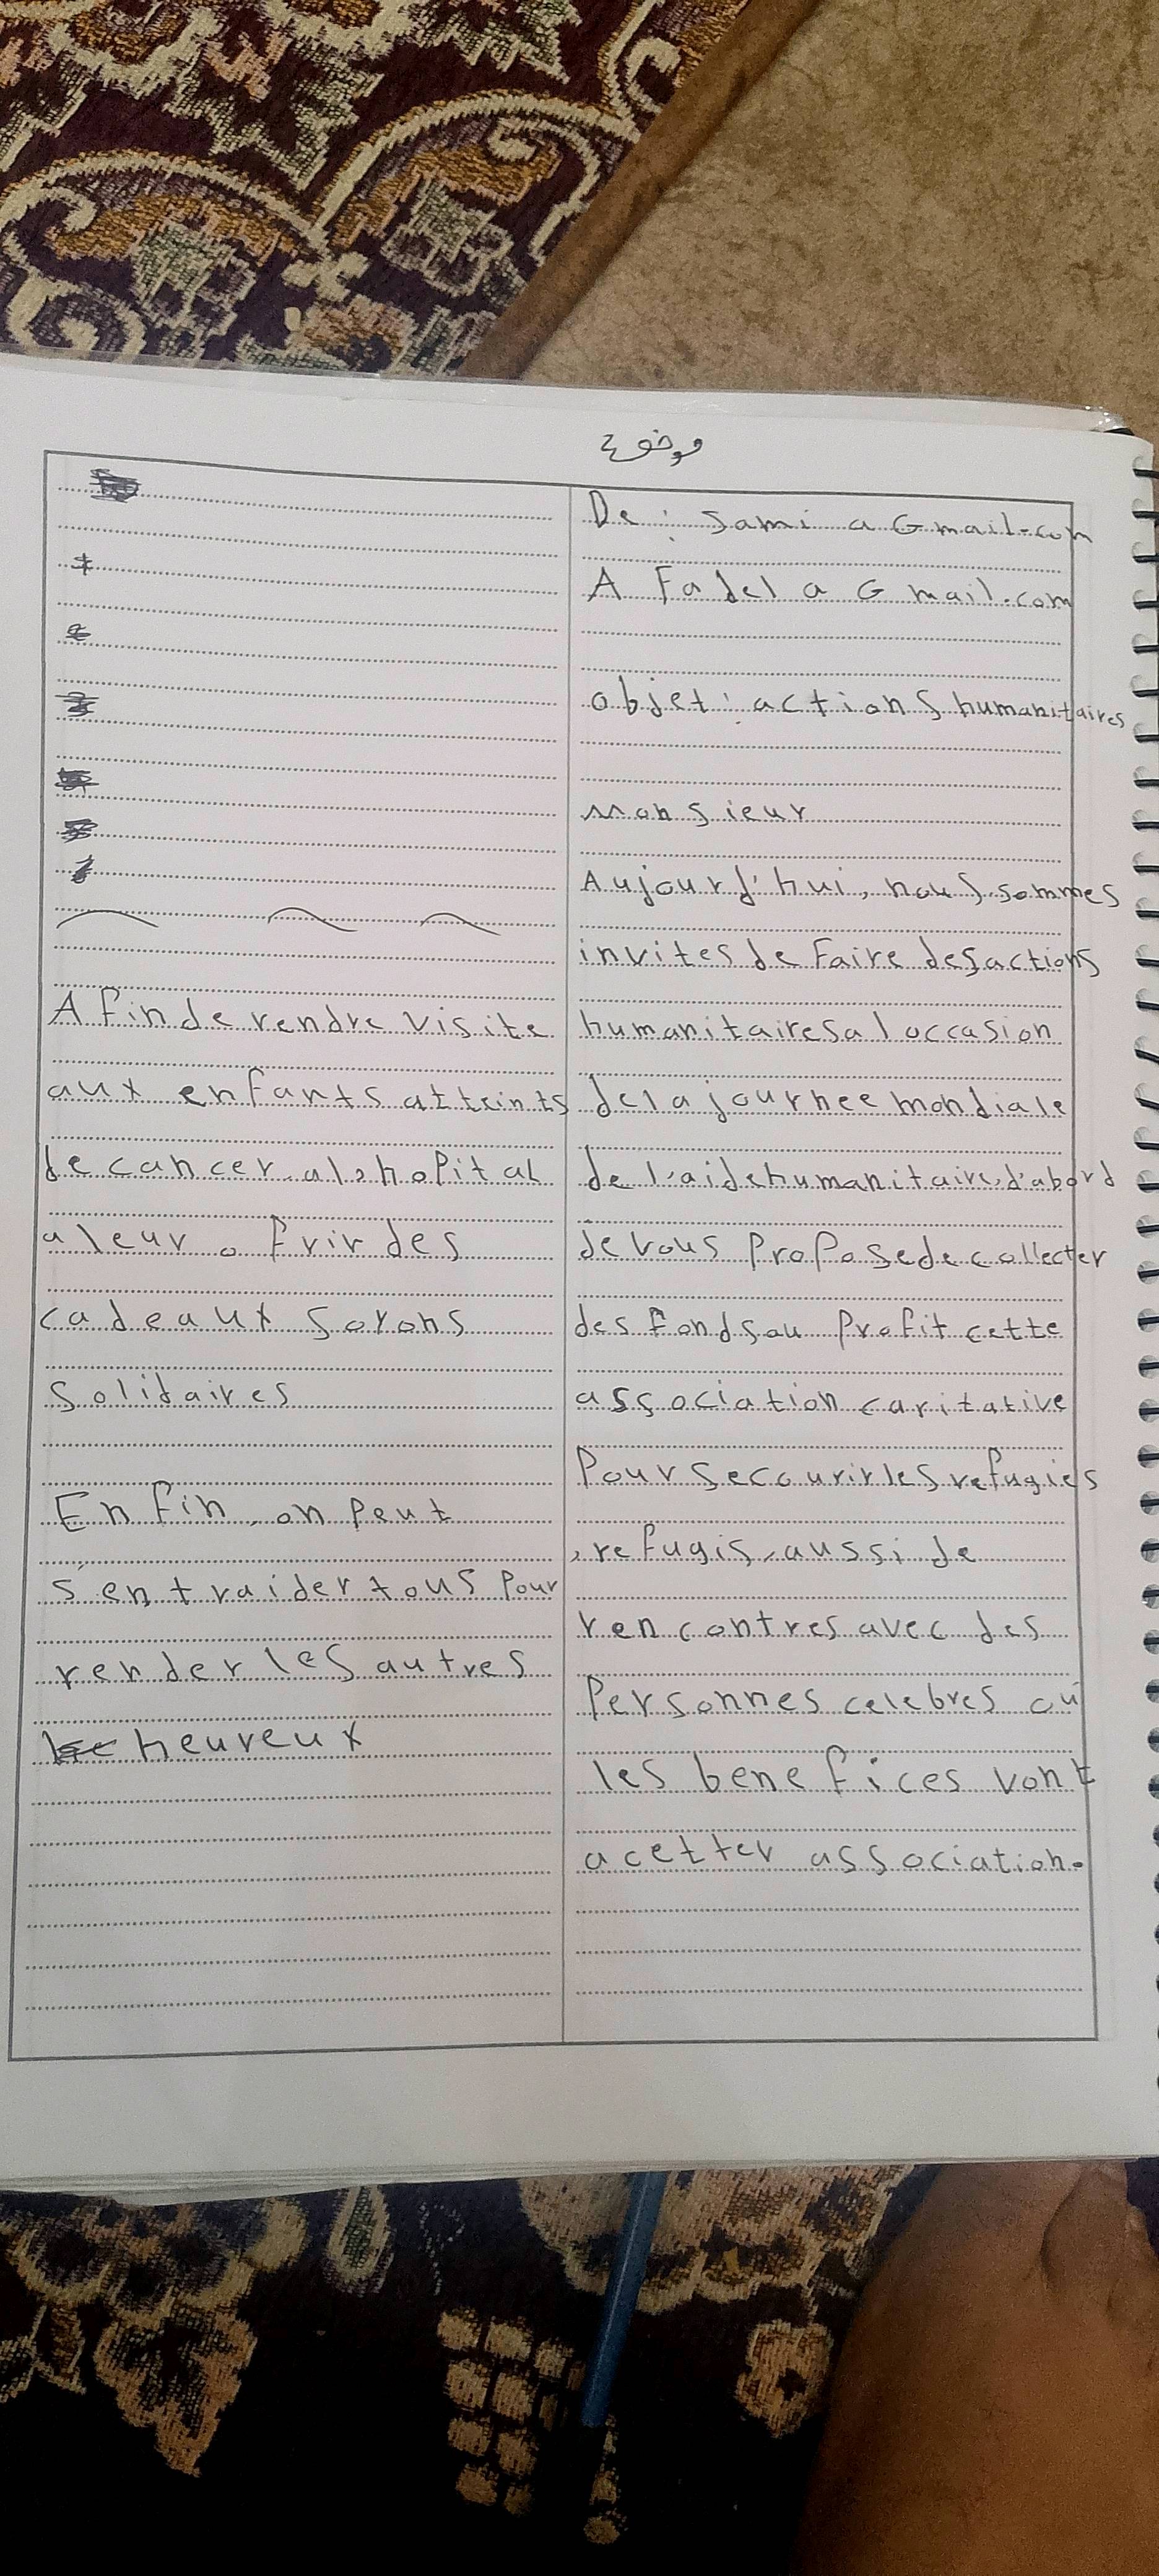 موضوع
De : sami a Gmail.com
A Fadel a Gmail.com
objet : actions humanitaires
monsieur
Aujourd'hui, nous sommes
invites de Faire des actions
humanitaires a l occasion
de la journee mondiale
de l'aide humanitaire, d'abord
Je vous propose de collecter
des fonds au profit cette
association caritative
Pour secourir les refugies
, refugis, aussi de
rencontres avec des
Personnes celebres où
les benefices vont
a cetter association.
Afin de rendre visite
aux enfants atteints
de cancer a l'hopital
a leur offrir des
cadeaux soyons
solidaires
Enfin, on peut
s'entraider tous pour
render les autres
heureux